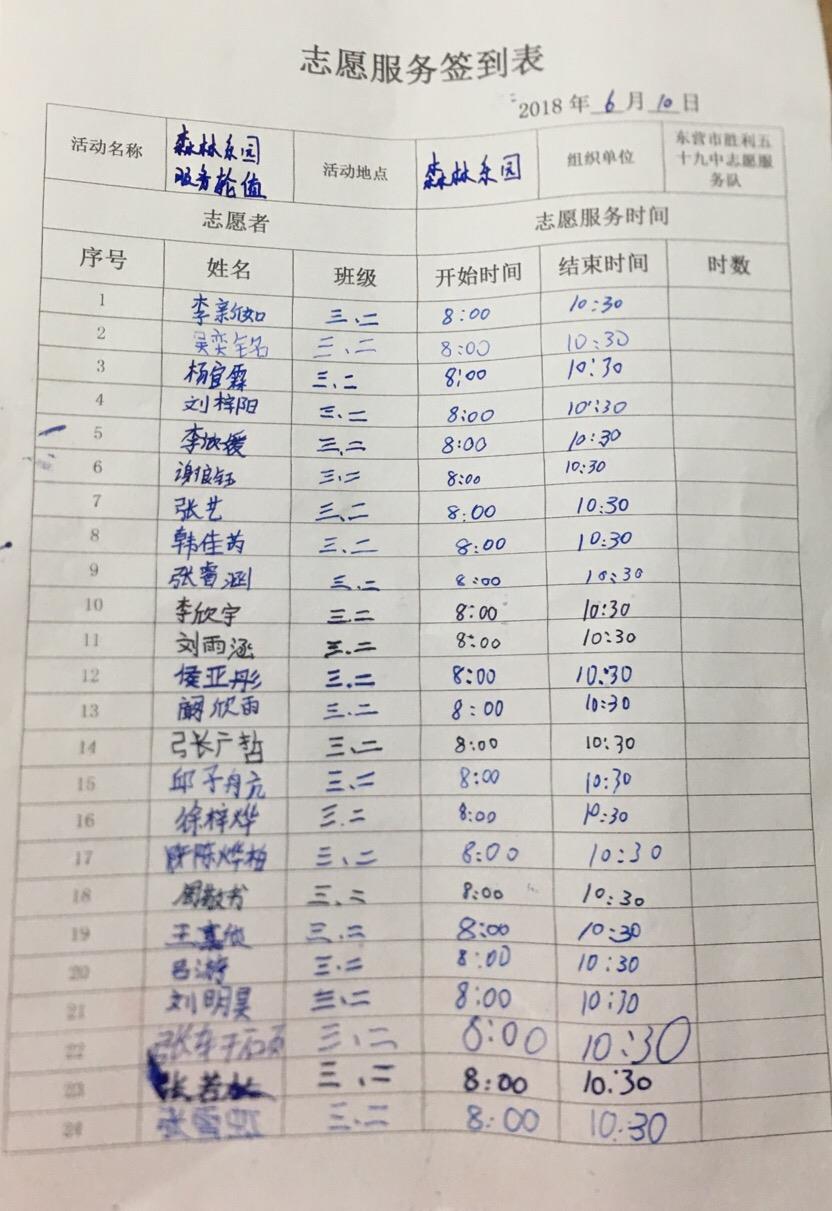 志愿服务签到表
2018 年 6 月 10 日
活动名称 森林乐园服务轮值 活动地点 森林乐园 组织单位 东营市胜利五十九中志愿服务队
志愿者 志愿服务时间
序号 姓名 班级 开始时间 结束时间 时数
1 李 三、二 8:00 10:30
2 吴奕铭 三、二 8:00 10:30
3 杨宜霖 三、二 8:00 10:30
4 刘梓阳 三、二 8:00 10:30
5 李欣媛 三、二 8:00 10:30
6 谢 三、二 8:00 10:30
7 张艺 三、二 8:00 10:30
8 韩佳芮 三、二 8:00 10:30
9 张 涵 三、二 8:00 10:30
10 李欣宇 三.二 8:00 10:30
11 刘雨涵 三.二 8:00 10:30
12 侯亚彤 三.二 8:00 10:30
13 阚欣雨 三.二 8:00 10:30
14 张广哲 三、二 8:00 10:30
15 邱子航 三、二 8:00 10:30
16 徐梓烨 三.二 8:00 10:30
17 陈烨柏 三、二 8:00 10:30
18 周敬书 三、二 8:00 10:30
19 王 欣 三.二 8:00 10:30
20 吕游 三.二 8:00 10:30
21 刘明昊 三、二 8:00 10:30
22 张 三、二 8:00 10:30
23 张若 三、二 8:00 10:30
24 张 三、二 8:00 10:30